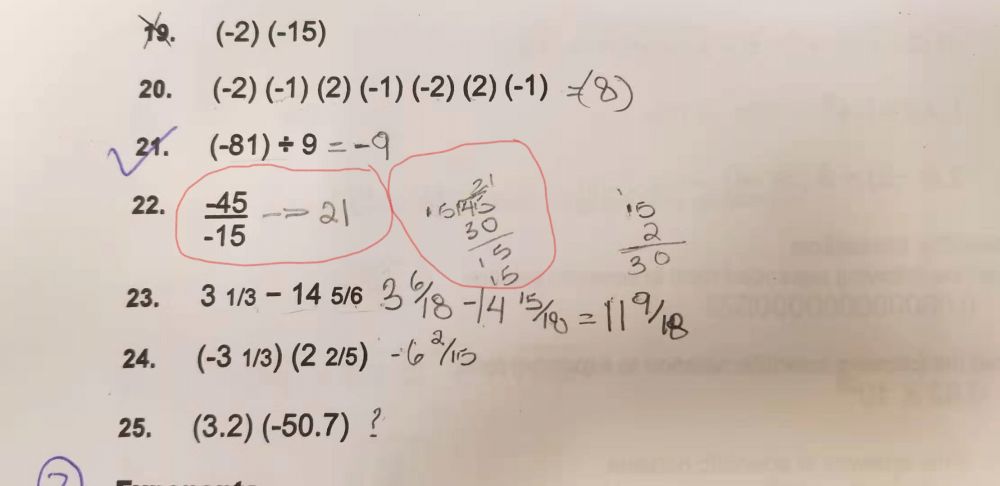 19. (-2) (-15)
20. (-2) (-1) (2) (-1) (-2) (2) (-1) =(8)
21. (-81) ÷ 9 = -9
22. -45
-15
--> 21
21
15 45
30
15
15
15
2
30
23. 3 1/3 – 14 5/6 3 6/18 - 14 15/18 = 11 9/18
24. (-3 1/3) (2 2/5) -6 2/15
25. (3.2) (-50.7) ?